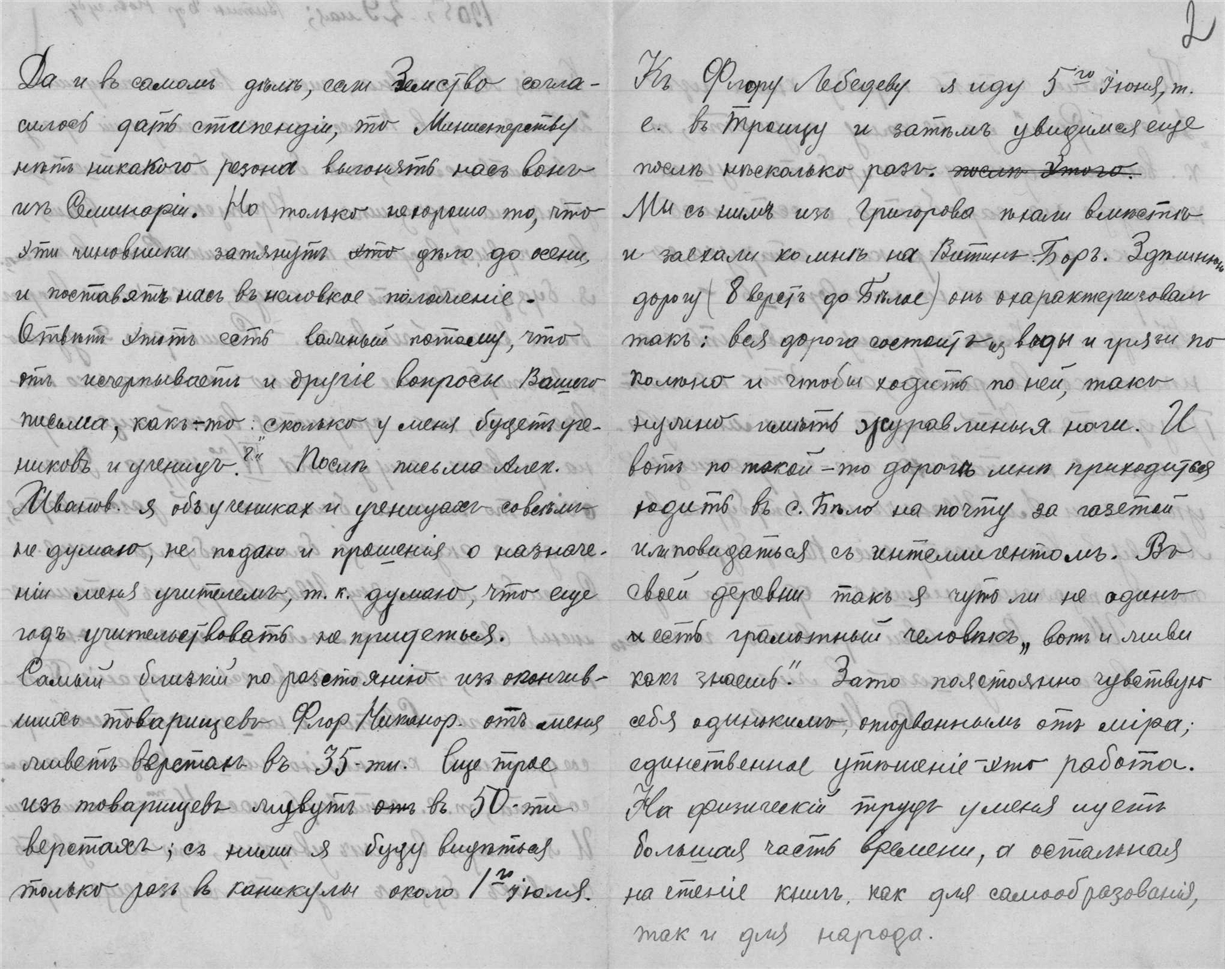 2
Да и въ самомъ дѣлѣ, если Земство согла-
силось дать стипендіи, то Министерству
нѣтъ никакого резона выгонять насъ вонъ
изъ Семинаріи. Но только нехорошо то, что
эти чиновники затянутъ это дѣло до осени,
и поставятъ насъ въ неловкое положеніе.
Отвѣтъ этотъ есть важный потому, что
онъ исчерпываетъ и другіе вопросы Вашего
письма, какъ-то: сколько у меня будетъ уче-
никовъ и ученицъ?" Послѣ письма Алек.
Иванов. я объ ученикахъ и ученицахъ совсѣмъ
не думаю, не подаю и прошенія о назначе-
ніи меня учителемъ, т. к. думаю, что еще
годъ учительствовать не придеться.
Самый близкій по разстоянію изъ окончив-
шихъ товарищевъ Флор. Никанор. отъ меня
живетъ верстахъ въ 35-ти. Еще трое
изъ товарищевъ живутъ въ 50-ти
верстахъ; съ ними я буду видѣться
только разъ въ каникулы около 1го Іюля.
Къ Флору Лебедеву я иду 5го Іюня, т.
е. въ Троицу и затѣмъ увидимся еще
послѣ нѣсколько разъ. послѣ этого.
Ми съ нимъ изъ Григорова ѣхали вмѣстѣ
и заехали ко мнѣ на Витинъ-Боръ. Здѣшнюю
дорогу (8 верстъ до Бѣлое) онъ охарактеризовалъ
такъ: вся дорога состоитъ из воды и грязи по
колѣно и чтобы ходить по ней, такъ
нужно имѣть журавлиныя ноги. И
вотъ по такой-то дорогѣ мнѣ приходиться
ходить въ с. Бѣло на почту за газетой
или повидаться съ интеллигентомъ. Въ
своей деревни такъ я чуть ли не одинъ
и есть грамотный человѣкъ, „вотъ и живи
какъ знаешь". Зато постоянно чувствую
себя одинокимъ, оторваннымъ отъ міра;
единственное утѣшеніе-это работа.
На физическій трудъ у меня идетъ
большая часть времени, а остальная
на чтеніе книгъ, как для самообразованія,
так и для народа.